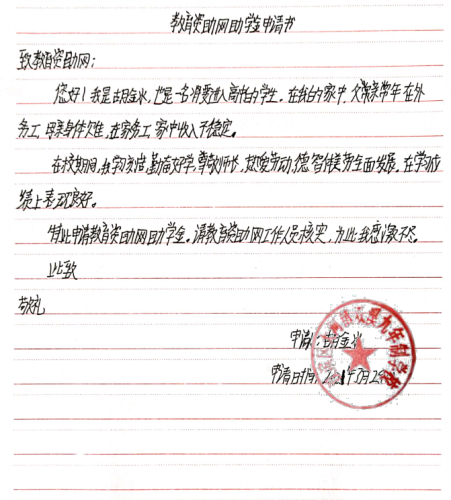 教育资助网助学金申请书
致教育资助网：
您好！我是胡金冰，也是一名将要进入高中的学生。在我的家中，父亲常年在外
务工，母亲身体欠佳，在家务工，家中收入不稳定。
在校期间，我学习认真，勤奋好学，尊敬师长，热爱劳动，德智体美劳全面发展，在学习成
绩上表现良好。
特此申请教育资助网助学金。请教育资助网工作人员核实，为此我感激不尽。
此致
敬礼
申请人：胡金冰
申请日期：2021年3月2
九年制学校